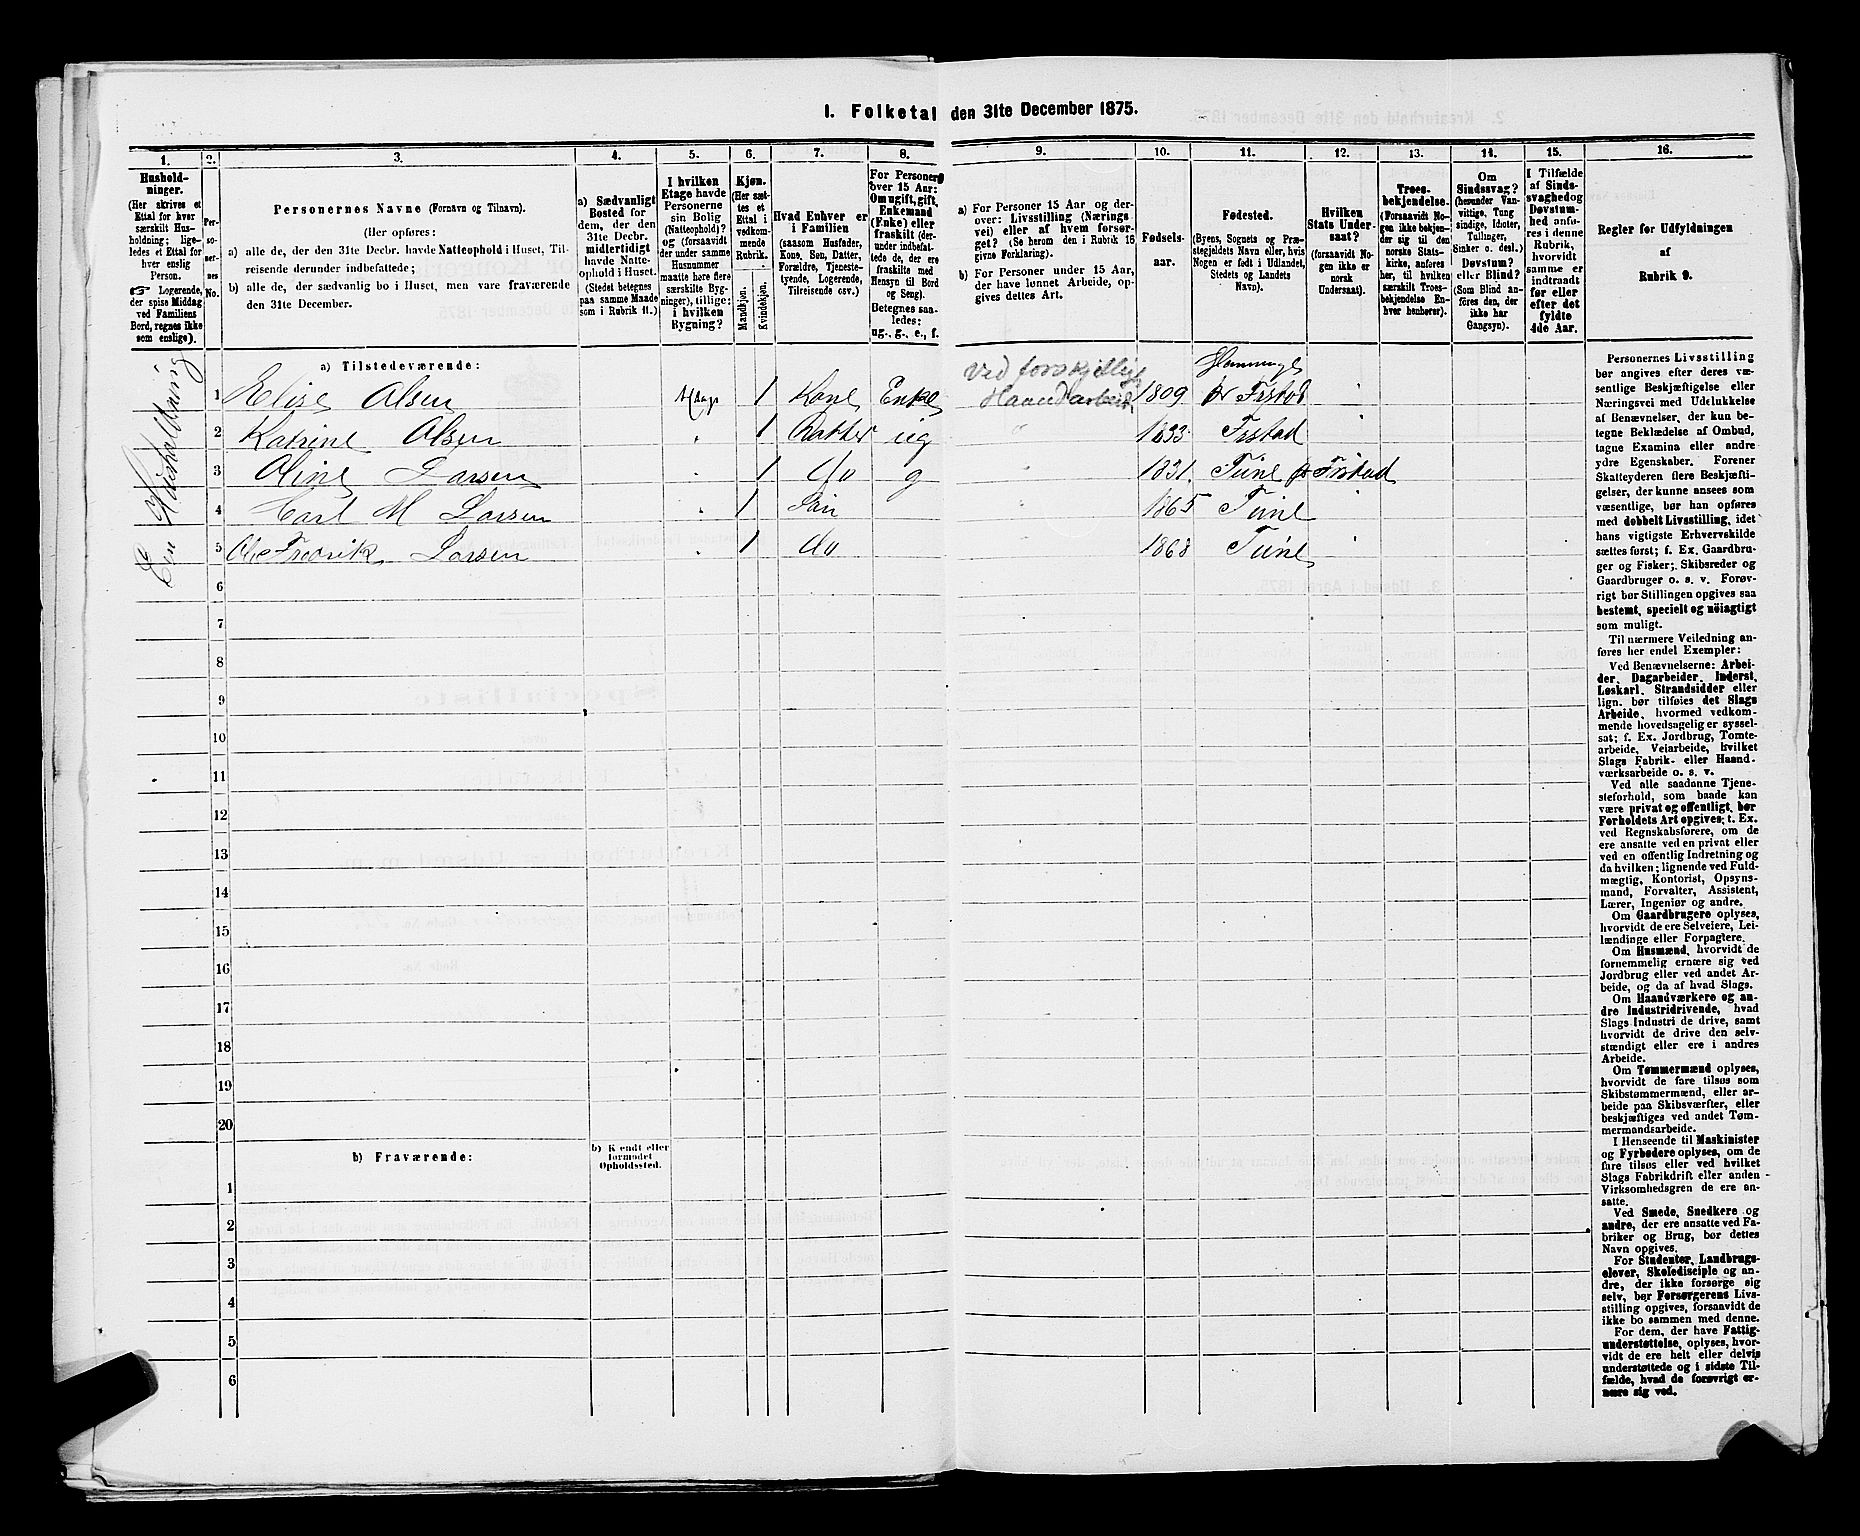 1. Folketal den 31te December 1875.
1.
2.
3.
4.
5.
6.
7.
8.
9.
10.
11.
12.
13.
14.
15.
16.
Hushold-
ninger.
(Her skrives et
Ettal for hver
særskilt Hus-
holdning; lige-
ledes et Ettal for
hver enslig
Person.
☞ Logerende,
der spise Middag
ved Familiens
Bord, regnes ikke
som enslige).
Per-
so-
ner-
nes
No.
Personernes Navne (Fornavn og Tilnavn).
(Her opføres:
a) alle de, der den 31te Decbr. havde Natteophold i Huset, Til-
reisende derunder indbefattede;
b) alle de, der sædvanlig bo i Huset, men vare fraværende
den 31te December.
a) Sædvanligt
Bosted for
dem, der den
31te Decbr.
midlertidigt
havde Natte-
ophold i Huset.
(Stedet betegnes
paa samme Maade
som i Rubrik 11.)
I hvilken
Etage havde
Personerne
sin Bolig
(Natteophold)?
og (forsaavidt
der under samme
Husnummer
maatte høre flere
særskilte Byg-
ninger), tillige:
i hvilken
Bygning?
Kjøn.
(Her sæt-
tes et
Ettal i
vedkom-
mende
Rubrik.
Mandkjøn.
Kvindekjøn.
Hvad Enhver er
i Familien
(saasom Husfader,
Kone, Søn, Datter,
Forældre, Tjeneste-
tyende, Logerende,
Tilreisende osv.)
For Personer
over 15 Aar:
Om ugift, gift,
Enkemand
(Enke) eller
fraskilt (der-
under indbefat-
tede de, der ere
fraskilte med
Hensyn til Bord
og Seng).
Betegnes saa-
ledes:
ug., g., e., f.
a) For Personer 15 Aar og der-
over: Livsstilling (Nærings-
vei) eller af hvem forsør-
get? (Se herom den i Rubrik 16
givne Forklaring).
b) For Personer under 15 Aar,
der have lønnet Arbeide, op-
gives dettes Art.
Fødsels-
aar.
Fødested.
(Byens, Sognets og Præ-
stegjeldets Navn eller, hvis
Nogen er født i Udlandet,
Stedets og Landets
Navn).
Hvilken
Stats Under-
saat?
(forsaavidt No-
gen ikke er
norsk
Undersaat).
Troes-
bekjendelse.
(Forsaavidt No-
gen ikke bekjen-
der sig til den
norske Stats-
kirke, anføres
her, til hvilken
særskilt Troes-
bekjendelse En-
hver henhører).
Om
Sindssvag?
(herunder Van-
vittige, Tung-
sindige, Idioter,
Tullinger,
Sinker o. desl.)
Døvstum?
eller Blind?
(Som Blind an-
føres den, der
ikke har
Gangsyn).
I Tilfælde
af Sinds-
svaghed og
Døvstum-
hed anfø-
res i denne
Rubrik,
hvorvidt
samme er
indtraadt
før eller
efter det
fyldte
4de Aar.
Regler for Udfyldningen
af
Rubrik 9.
En Husholdning
a) Tilstedeværende:
1 Elise Olsen 1 Kone Enke Ved forskjellig Haandarbeide 1809 Frstad
2 Katrine Olsen 1 Datter ug " 1833 Frstad
3 Oline Larsen 1 do g " 1831 Tune pr Frstad
4 Carl M Larsen 1 Sön 1865 Tune
5 Ole Fredrik Larsen 1 do 1868 Tune
6
7
8
9
10
11
12
13
14
15
16
17
18
19
20
b) Fraværende:
b) Kjendt eller
formodet
Opholdssted.
1
2
3
4
5
6
Personernes Livsstilling
bør angives efter deres væ-
sentlige Beskjæftigelse eller
Næringsvei med Udelukkelse
af Benævnelser, der kun be-
tegne Beklædelse af Ombud,
tagne Examina eller andre
ydre Egenskaber. Forener
Skatteyderen flere Beskjæfti-
gelser, der kunne ansees som
væsentlige, bør han opføres
med dobbelt Livsstilling, idet
hans vigtigste Erhvervskilde
sættes først; f. Ex. Gaardbru-
ger og Fisker; Skibsreder og
Gaardbruger o. s. v. Forøv-
rigt bør Stillingen opgives saa
bestemt, specielt og nöiagtigt
som muligt.
Til nærmere Veiledning an-
føres her endel Exempler:
Ved Benævnelserne: Arbei-
der, Dagarbeider, Inderst,
Løskarl, Strandsidder eller
lign. bør tilføies det Slags
Arbeide, hvormed vedkom-
mende hovedsagelig er syssel-
sat; f. Ex. Jordbrug, Tomte-
arbeide, Veiarbeide, hvilket
Slags Fabrik- eller Haand-
værksarbeide o. s. v.
Ved alle saadanne Tjene-
steforhold, som baade kan
være privat og offentligt, bør
Forholdets Art opgives; t. Ex.
ved Regnskabsførere, om de
ere ansatte ved en privat eller
ved en offentlig Indretning og
da hvilken; lignende ved Fuld-
mægtig, Kontorist, Opsyns-
mand, Forvalter, Assistent,
Lærer, Ingeniør og andre.
Om Gaardbrugere oplyses,
hvorvidt de ere Selveiere, Lei-
lændinge eller Forpagtere.
Om Husmænd, hvorvidt de
fornemmelig ernære sig ved
Jordbrug eller ved andet Ar-
beide, og da af hvad Slags.
Om Haandværkere og an-
dre Industridrivende, hvad
Slags Industri de drive, samt
hvorvidt de drive den selv-
stændigt eller ere i andres
Arbeide.
Om Tømmermænd oplyses,
hvorvidt de fare tilsøs som
Skibstømmermænd, eller ar-
beide paa Skibsværfter, eller
beskjæftiges ved andet Tøm-
mermandsarbeide.
I Henseende til Maskinister
og Fyrbødere oplyses, om de
fare tilsøs eller ved hvilket
Slags Fabrikdrift eller anden
Virksomhedsgren de ere an-
satte.
Ved Smede, Snedkere og
andre, der ere ansatte ved Fa-
briker og Brug, bør dettes
Navn opgives.
For Studenter, Landbrugs-
elever, Skoledisciple og an-
dre, der ikke forsørge sig
selv, bør Forsørgerens Livs-
stilling opgives, forsaavidt de
ikke bo sammen med denne.
For dem, der have Fattig-
understøttelse, oplyses, hvor-
vidt de ere helt eller delvis
understøttede og i sidste Til-
fælde, hvad de forøvrigt er-
nære sig ved.